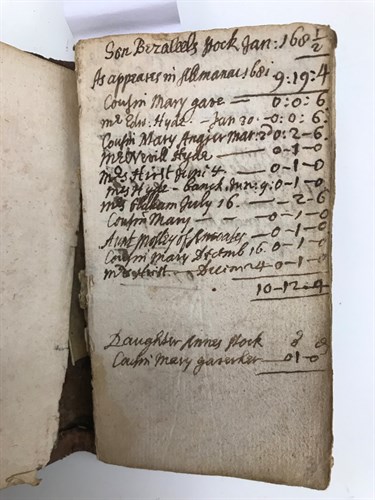 Son Bezaleels Stock Jan: 168½
As appeares in Almanac 1681 9:19:4
Cousin Mary gave — 0:0:6
mr Edw. Hyde - Jan 20. -0:0:6
Cousin Mary Angier Mar: 20 0-2-6
Mr Nevill Hyde — 0-1-0
Mrs Hirst 0-1-0
Mrs Hyde - June: 9: 0-1-0
Mrs July 16. — -2-6
Cousin Mary — — 0-1-0
Aunt Mosley of Ancoates — 0-1-0
Cousin Mary Decemb 16. 0-1-0
Mrs Hirst — Decem 24 0-1-0
10-12-4
Daughter Annes Stock
Cousin Mary gave her — 0 1-0